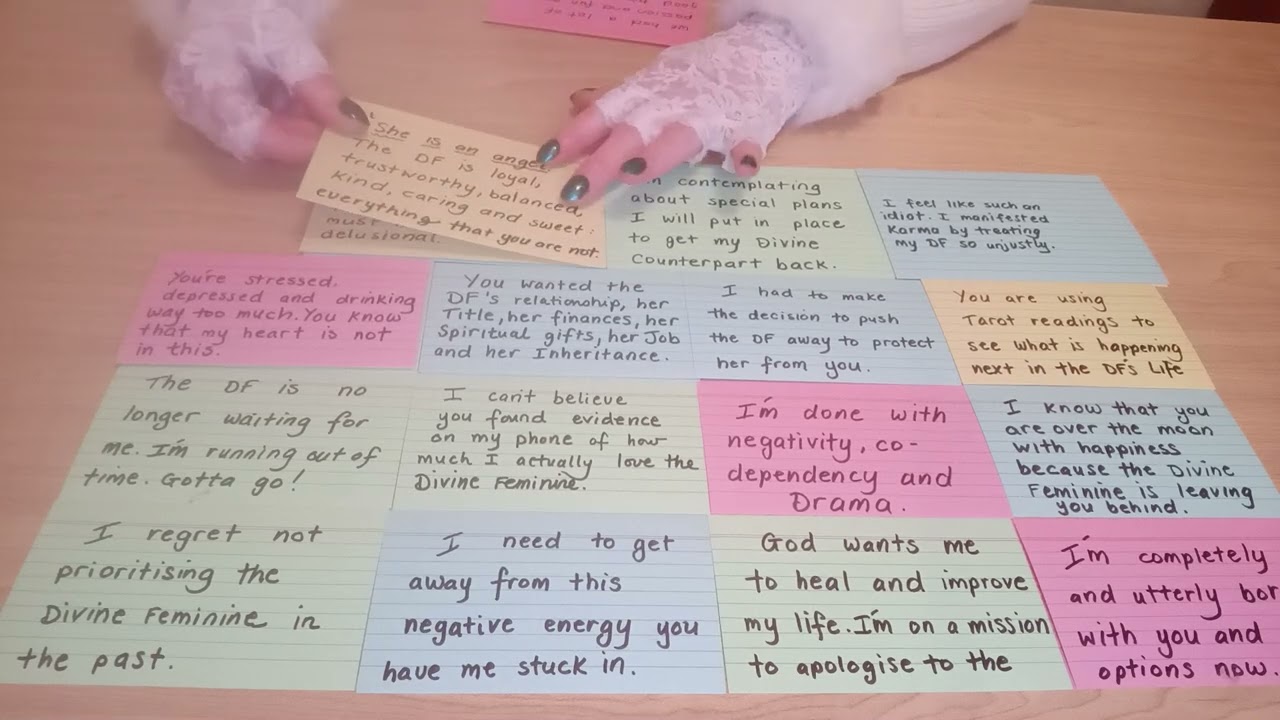 we had a lot of
passion and
good
She is an angel
The DF is loyal,
trustworthy, balanced,
kind, caring and sweet:
everything that you are not.
must
delusional.
contemplating
about special plans
I will put in place
to get my Divine
Counterpart back.
I feel like such an
idiot. I manifested
Karma by treating
my DF so unjustly.
You're stressed.
depressed and drinking
way too much. You know
that my heart is not
in this.
You wanted the
DF's relationship, her
Title, her finances, her
Spiritual gifts, her Job
and her Inheritance.
I had to make
the decision to push
the DF away to protect
her from you.
You are using
Tarot readings to
see what is happening
next in the DF's Life
The DF is no
longer waiting for
me. I'm running out of
time. Gotta go!
I can't believe
you found evidence
on my phone of how
much I actually love the
Divine Feminine.
I'm done with
negativity, co-
dependency and
Drama.
I know that you
are over the moon
with happiness
because the Divine
Feminine is leaving
you behind.
I regret not
prioritising the
Divine Feminine in
the past.
I need to get
away from this
negative energy you
have me stuck in.
God wants me
to heal and improve
my life. I'm on a mission
to apologise to the
I'm completely
and utterly bor
with you and
options now.